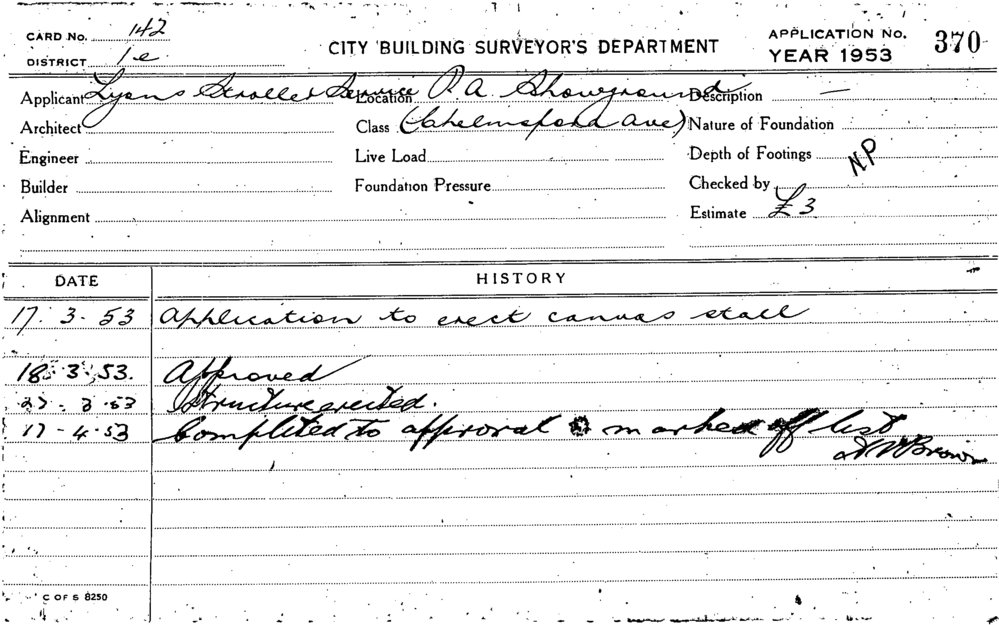 CARD No. 142
DISTRICT 1e
CITY BUILDING SURVEYOR'S DEPARTMENT
APPLICATION No. 370
YEAR 1953
Applicant Lyons Stroller Service Location R A Showground Description —
Architect Class (Chelmsford Ave) Nature of Foundation
Engineer Live Load Depth of Footings NP
Builder Foundation Pressure Checked by
Alignment Estimate £3
DATE HISTORY
17. 3. 53 Application to erect canvas stall
18. 3. 53. Approved
27 - 3 .53 Structure erected.
17 - 4. 53 Completed to approval marked off list
Brown
C OF S 8250